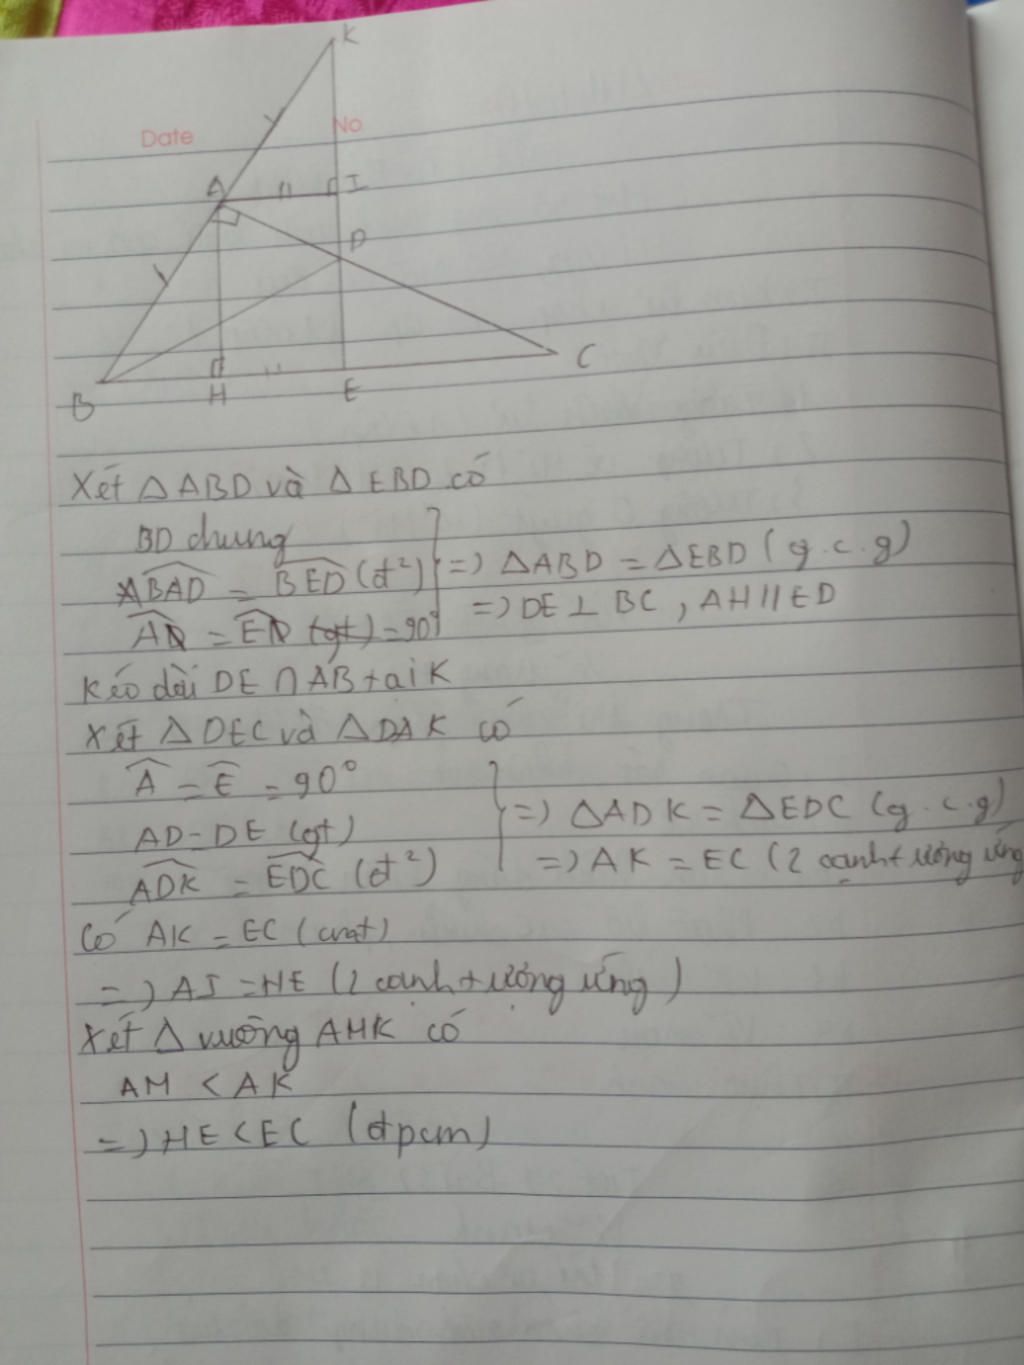 K
Date
No
A
I
D
B
H
E
C
Xét △ABD và △EBD có
BD chung
BAD = BED (đ²)
=) △ABD = △EBD (g.c.g)
=90°
=) DE ⊥ BC, AH // ED
Kéo dài DE ∩ AB tại K
Xét △DEC và △DAK có
A = E = 90°
AD = DE (gt)
=) △ADK = △EDC (g.c.g)
ADK = EDC (đ²)
=) AK = EC (2 cạnh tương ứng
Có AK = EC (cmt)
=) AI = HE (2 cạnh tương ứng)
Xét △ vuông AHK có
AM < AK
=) HE < EC (đpcm)